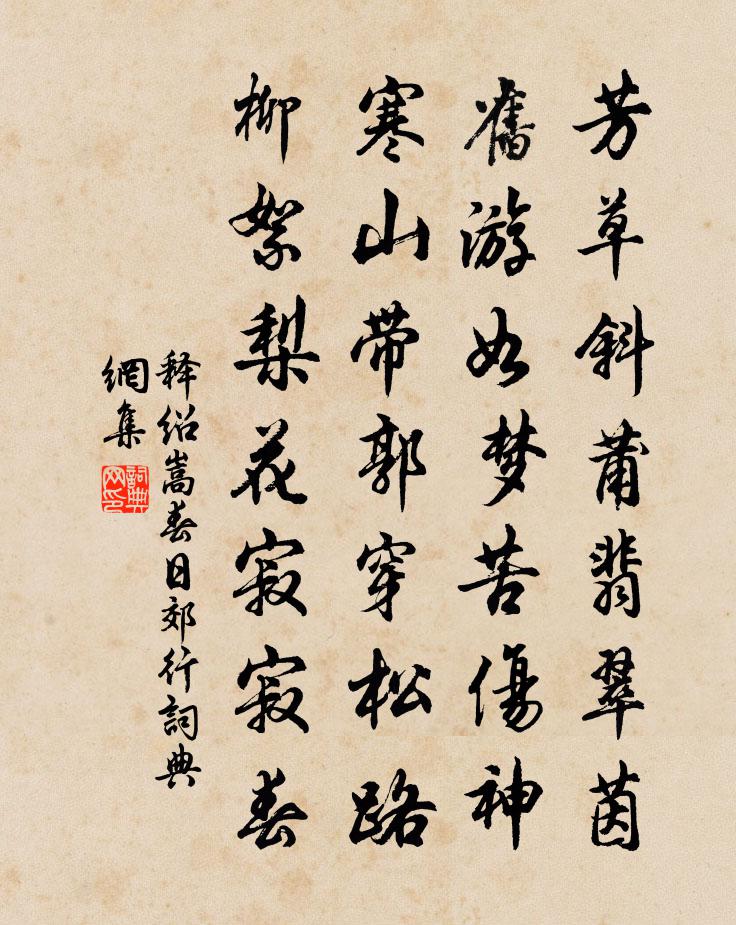 芳草斜莆翡翠茵
舊游如梦苦傷神
寒山带郭穿松路
柳絮梨花寂寂春
释紹嵩春日郊行詞典
網集
詞典网印